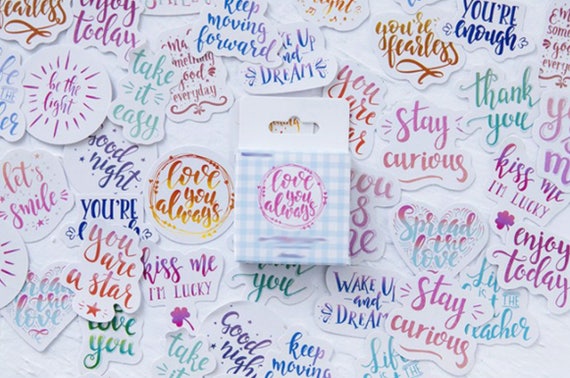 enjoy
today
keep
moving
forward
Wake Up
and
DREAM
you're
fearless
YOU'RE
enough
be the
light
take
it
easy
make
something
good
everyday
you
are
a star
stay
curious
thank
you
kiss me
I'M LUCKY
good
night
let's
smile
love
you
always
love
you
always
YOU'RE
you are
a star
kiss me
I'M LUCKY
Spread
the
love
enjoy
today
Spread
the
love
love
you
you
WAKE UP
and
DREAM
stay
curious
Life
is
THE
teacher
take
it
Good
night
keep
moving
Life
is THE